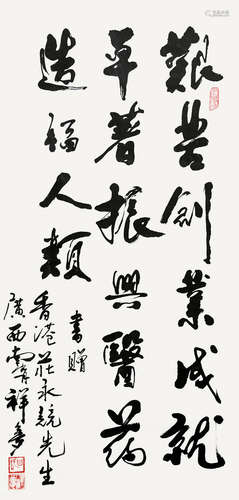 艱苦創業成就
卓著振興醫药
造福人類
書贈
香港莊永競先生
廣西南寧祥